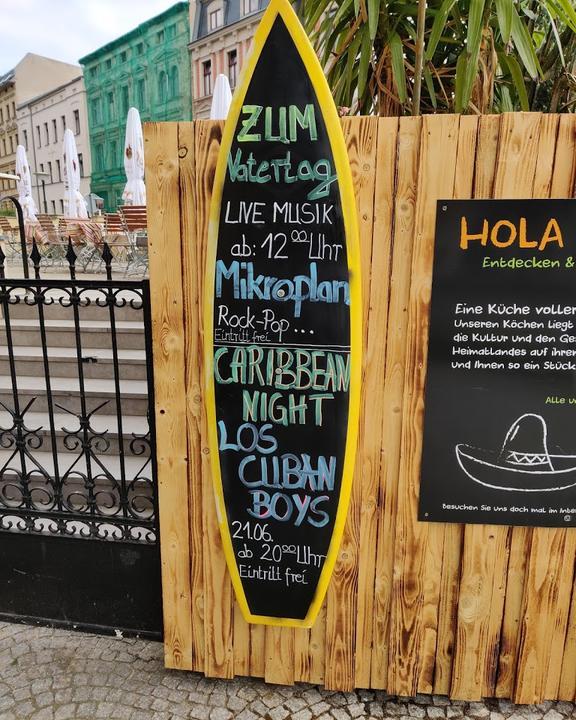 ZUM
Vatertag
LIVE MUSIK
ab: 12⁰⁰ Uhr
Mikroplan
Rock-Pop...
Eintritt frei
CARIBBEAN
NIGHT
LOS
CUBAN
BOYS
21.06.
ab 20⁰⁰ Uhr
Eintritt frei
HOLA
Entdecken &
Eine Küche voller
Unseren Köchen liegt
die Kultur und den Ges
Heimatlandes auf ihren
und Ihnen so ein Stück
Alle u
Besuchen Sie uns doch mal im Inte